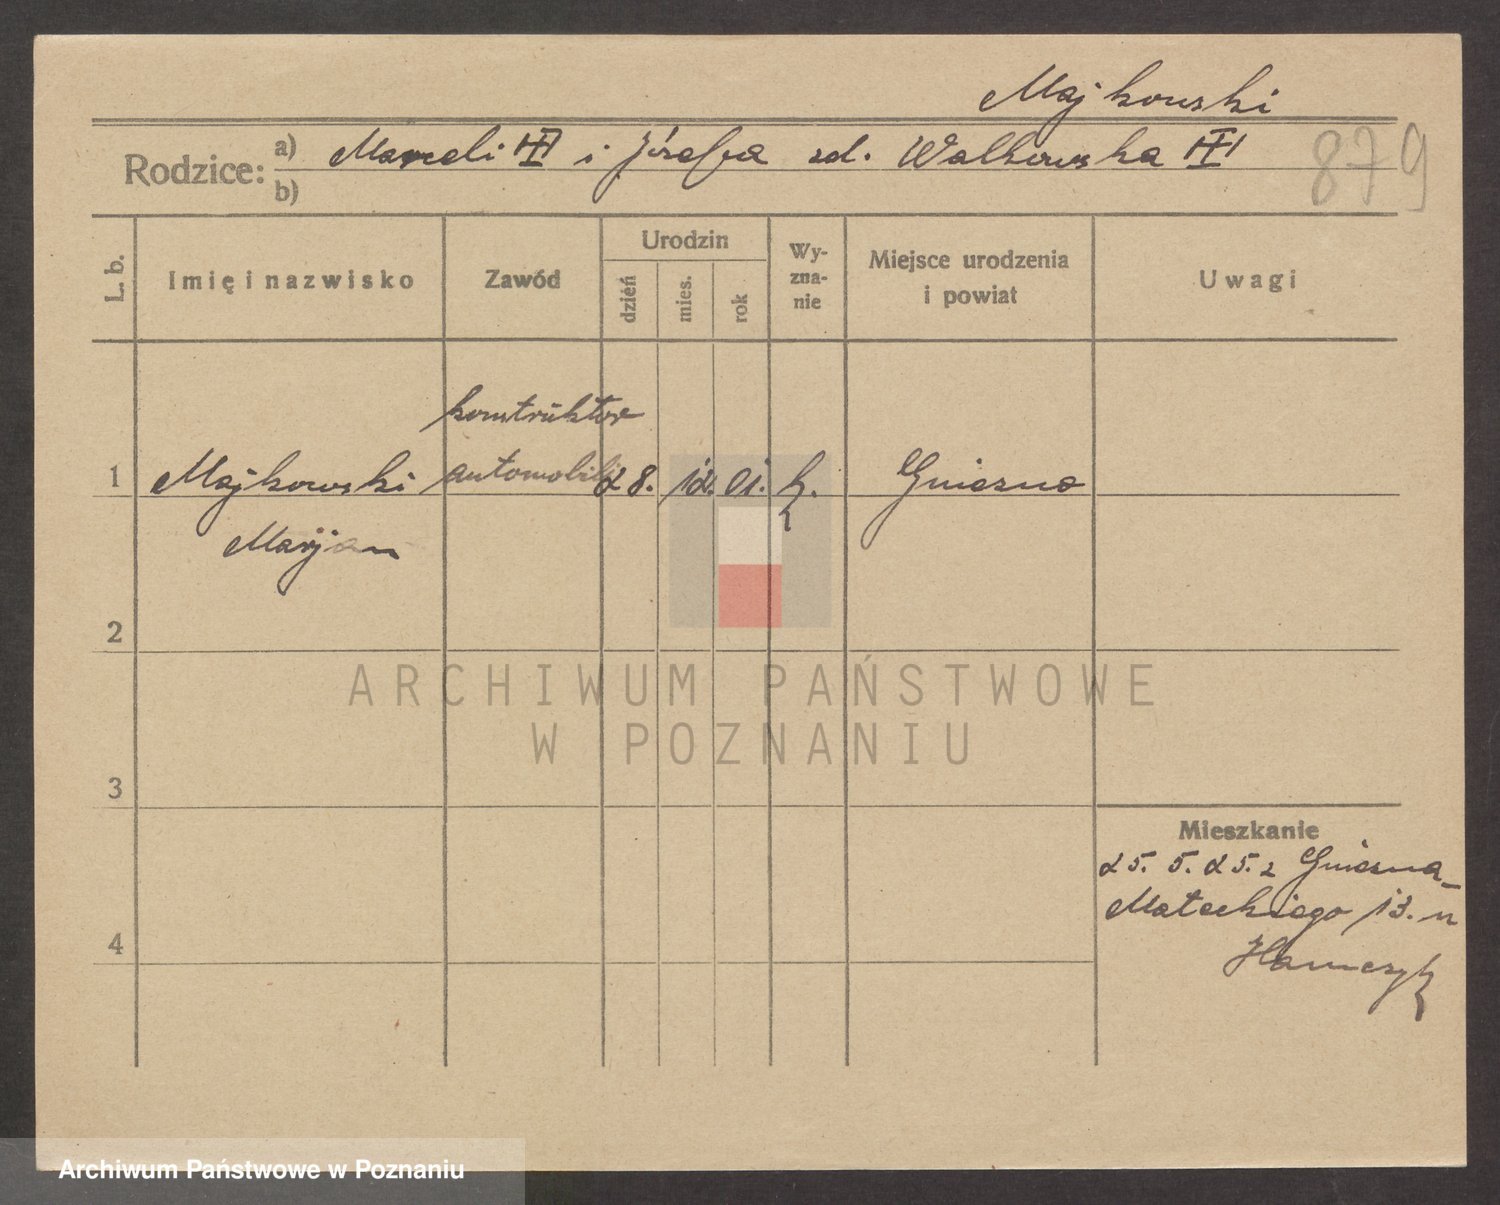 Majkowski
Rodzice: a) Marceli i Józefa zd. Walkowska
b)
879
L. b.
Imię i nazwisko
Zawód
Urodzin
dzień
mies.
rok
Wy-
zna-
nie
Miejsce urodzenia
i powiat
Uwagi
konstruktor
1 Majkowski automobili 28. 12. 01. k. Gniezno
Marjan
2
ARCHIWUM PAŃSTWOWE
W POZNANIU
3
Mieszkanie
25. 5. 25. z Gniezna
13. u
4
Archiwum Państwowe w Poznaniu